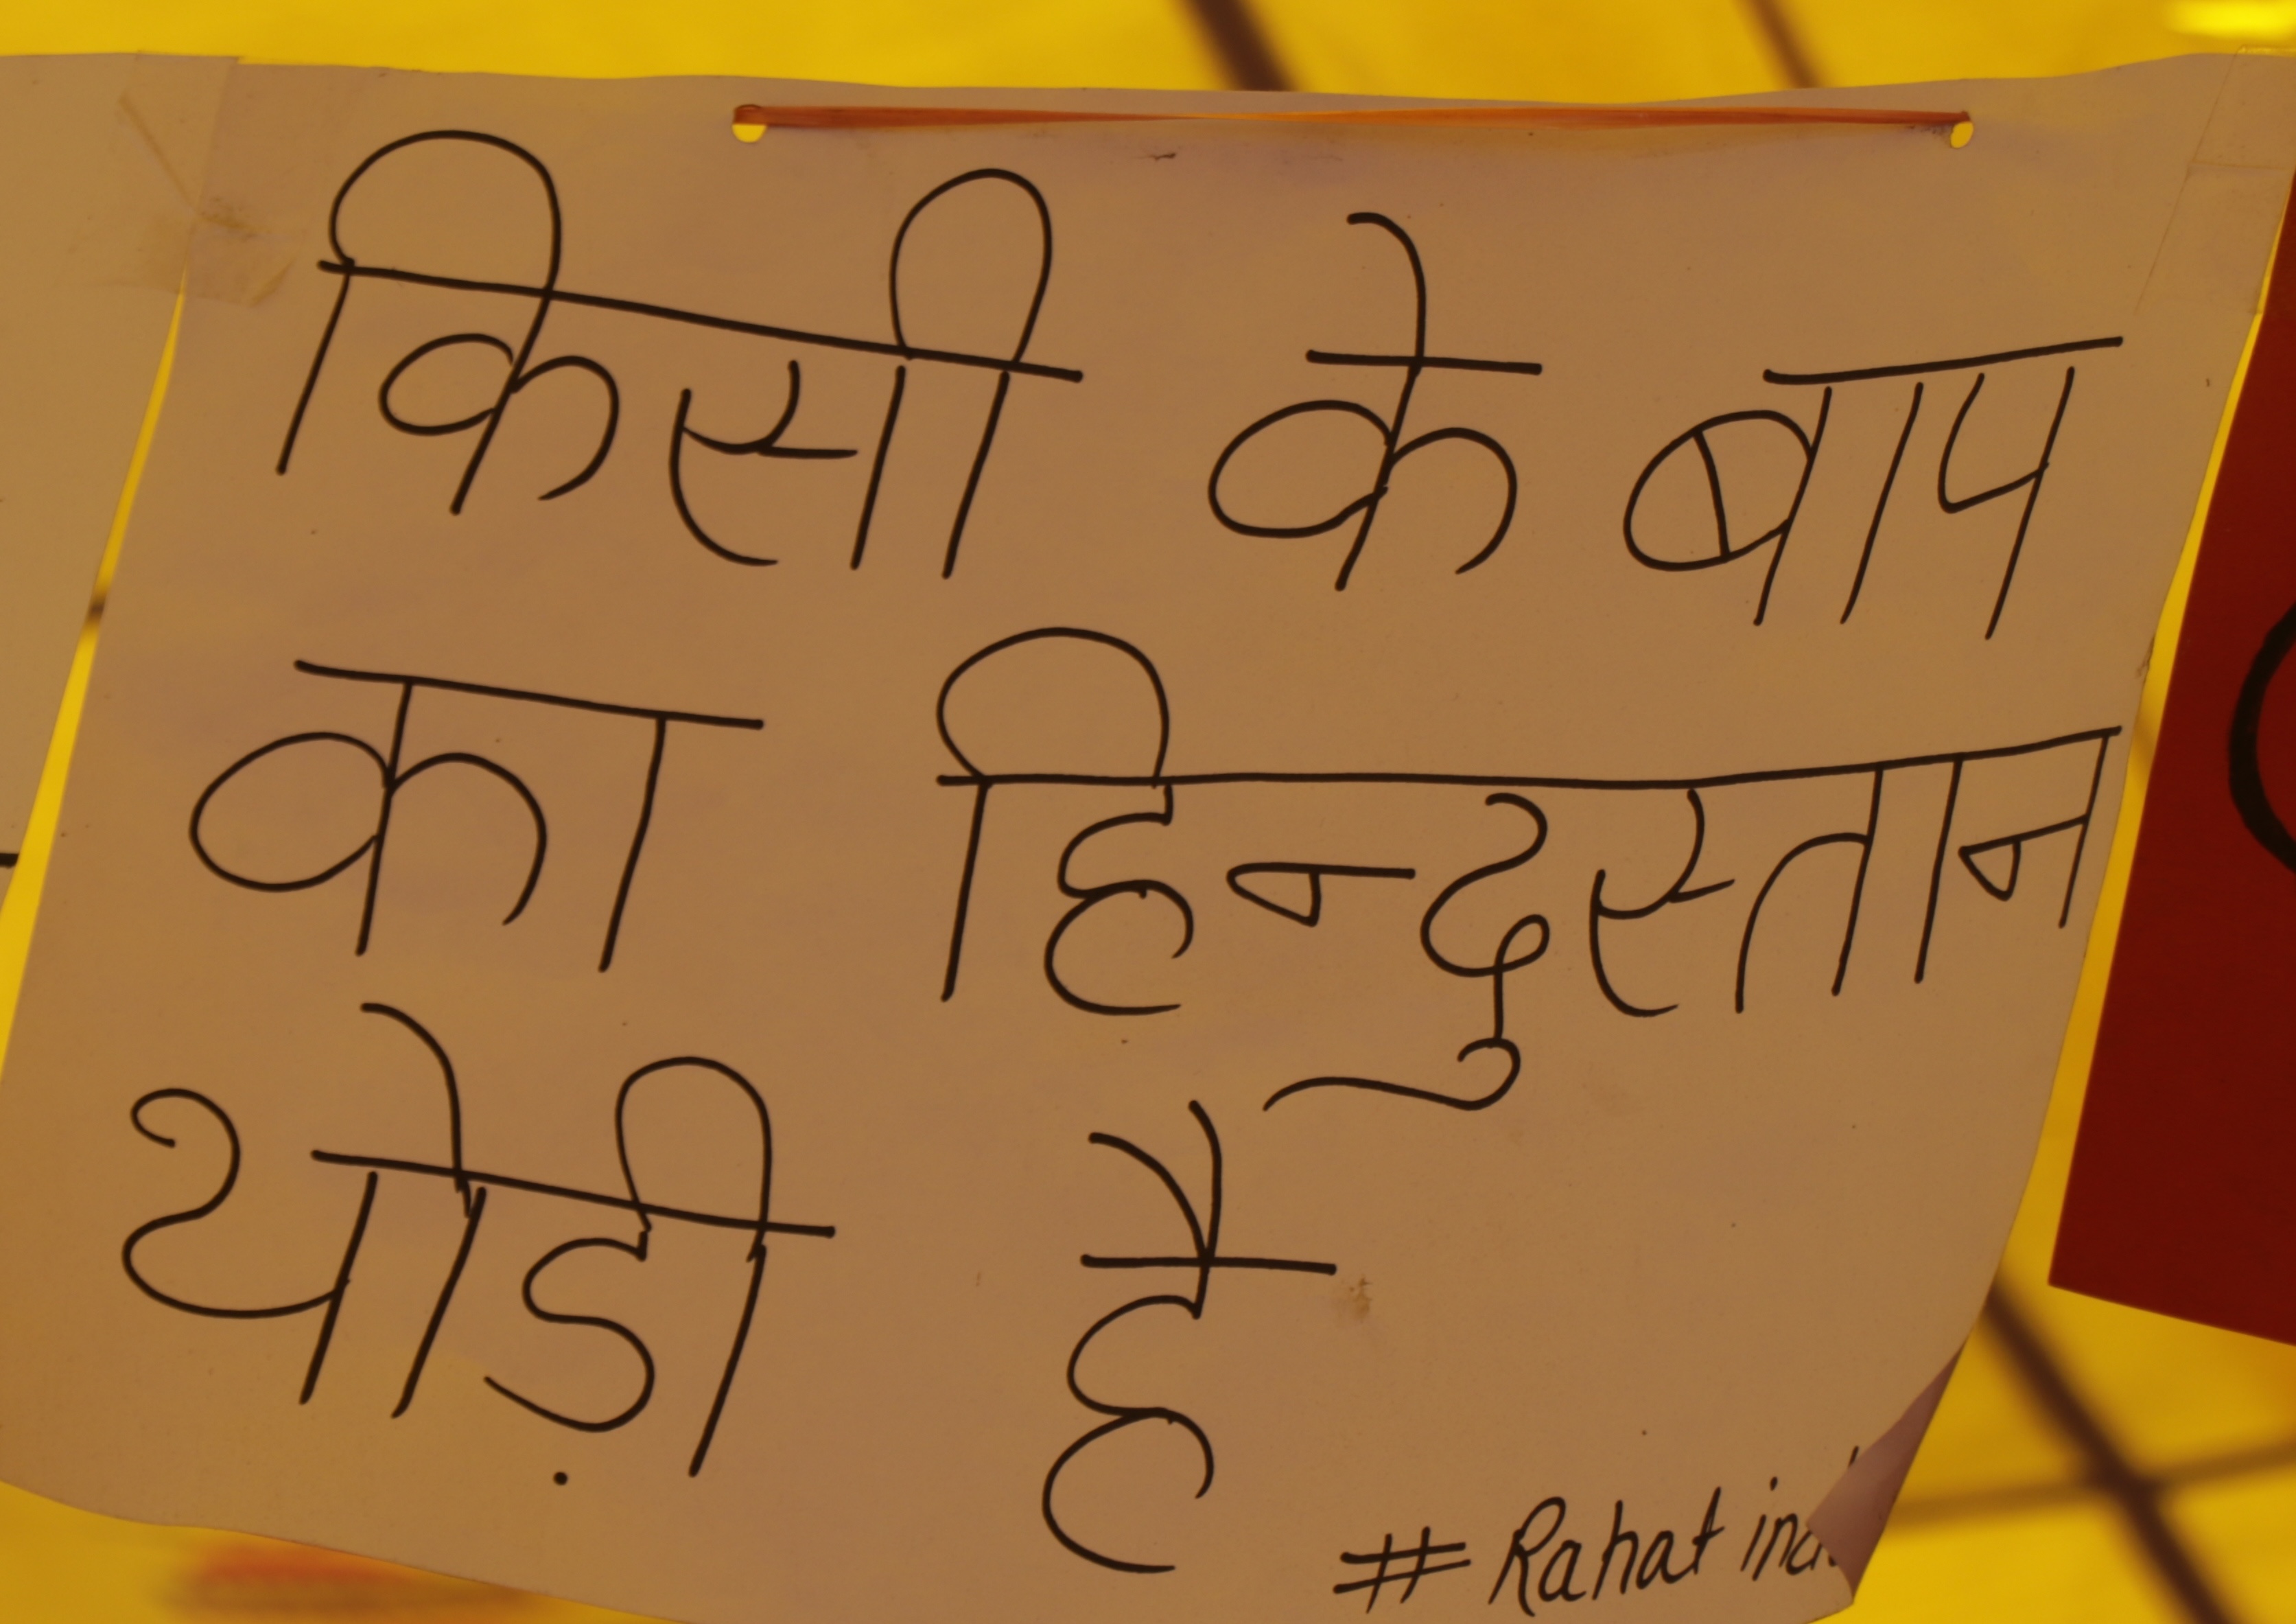 किसी के बाप
का हिन्दुस्तान
थोड़ी है
# Rahat